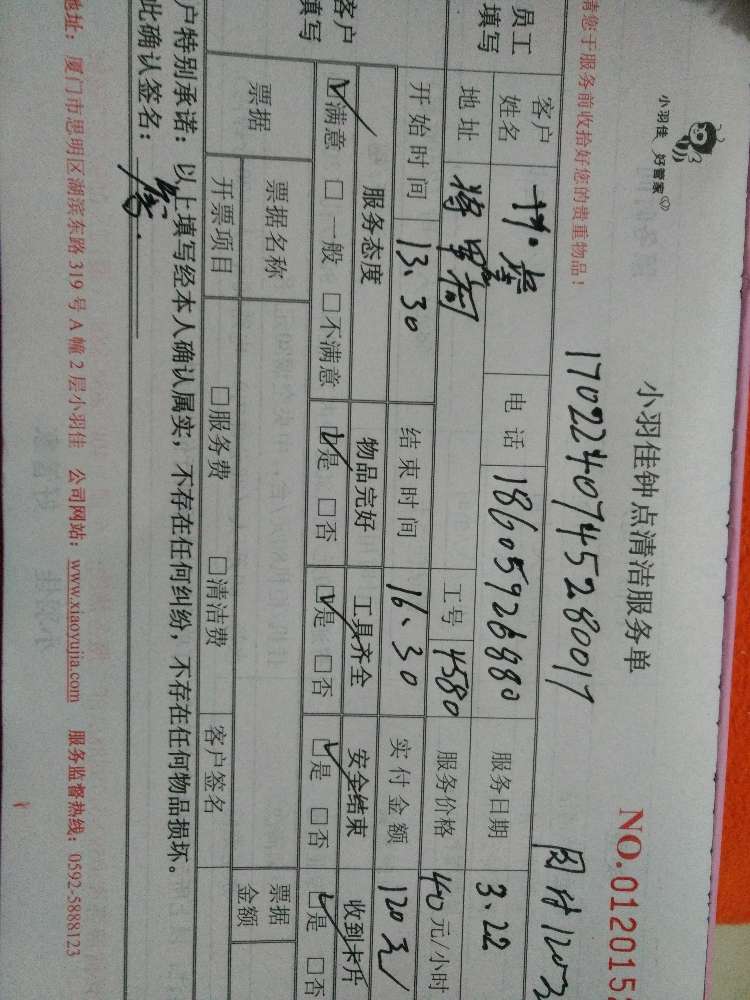 小羽佳 好管家
小羽佳钟点清洁服务单
NO.012015
请您于服务前收拾好您的贵重物品！
1702240745280017
员工填写
客户姓名
电话 18605926980 服务日期 3.22
地址
工号 4580 服务价格 40元/小时
开始时间 13.30 结束时间 16.30 实付金额 120元
客户填写
服务态度 物品完好 工具齐全 安全结束 收到卡片
☑满意 □一般 □不满意 ☑是 □否 ☑是 □否 ☑是 □否 ☑是 □否
票据 票据名称 票据金额
开票项目 □服务费 □清洁费 客户签名
户特别承诺：以上填写经本人确认属实，不存在任何纠纷，不存在任何物品损坏。
此确认签名：
地址：厦门市思明区湖滨东路319号A幢2层小羽佳 公司网站：www.xiaoyujia.com 服务监督热线：0592-5888123